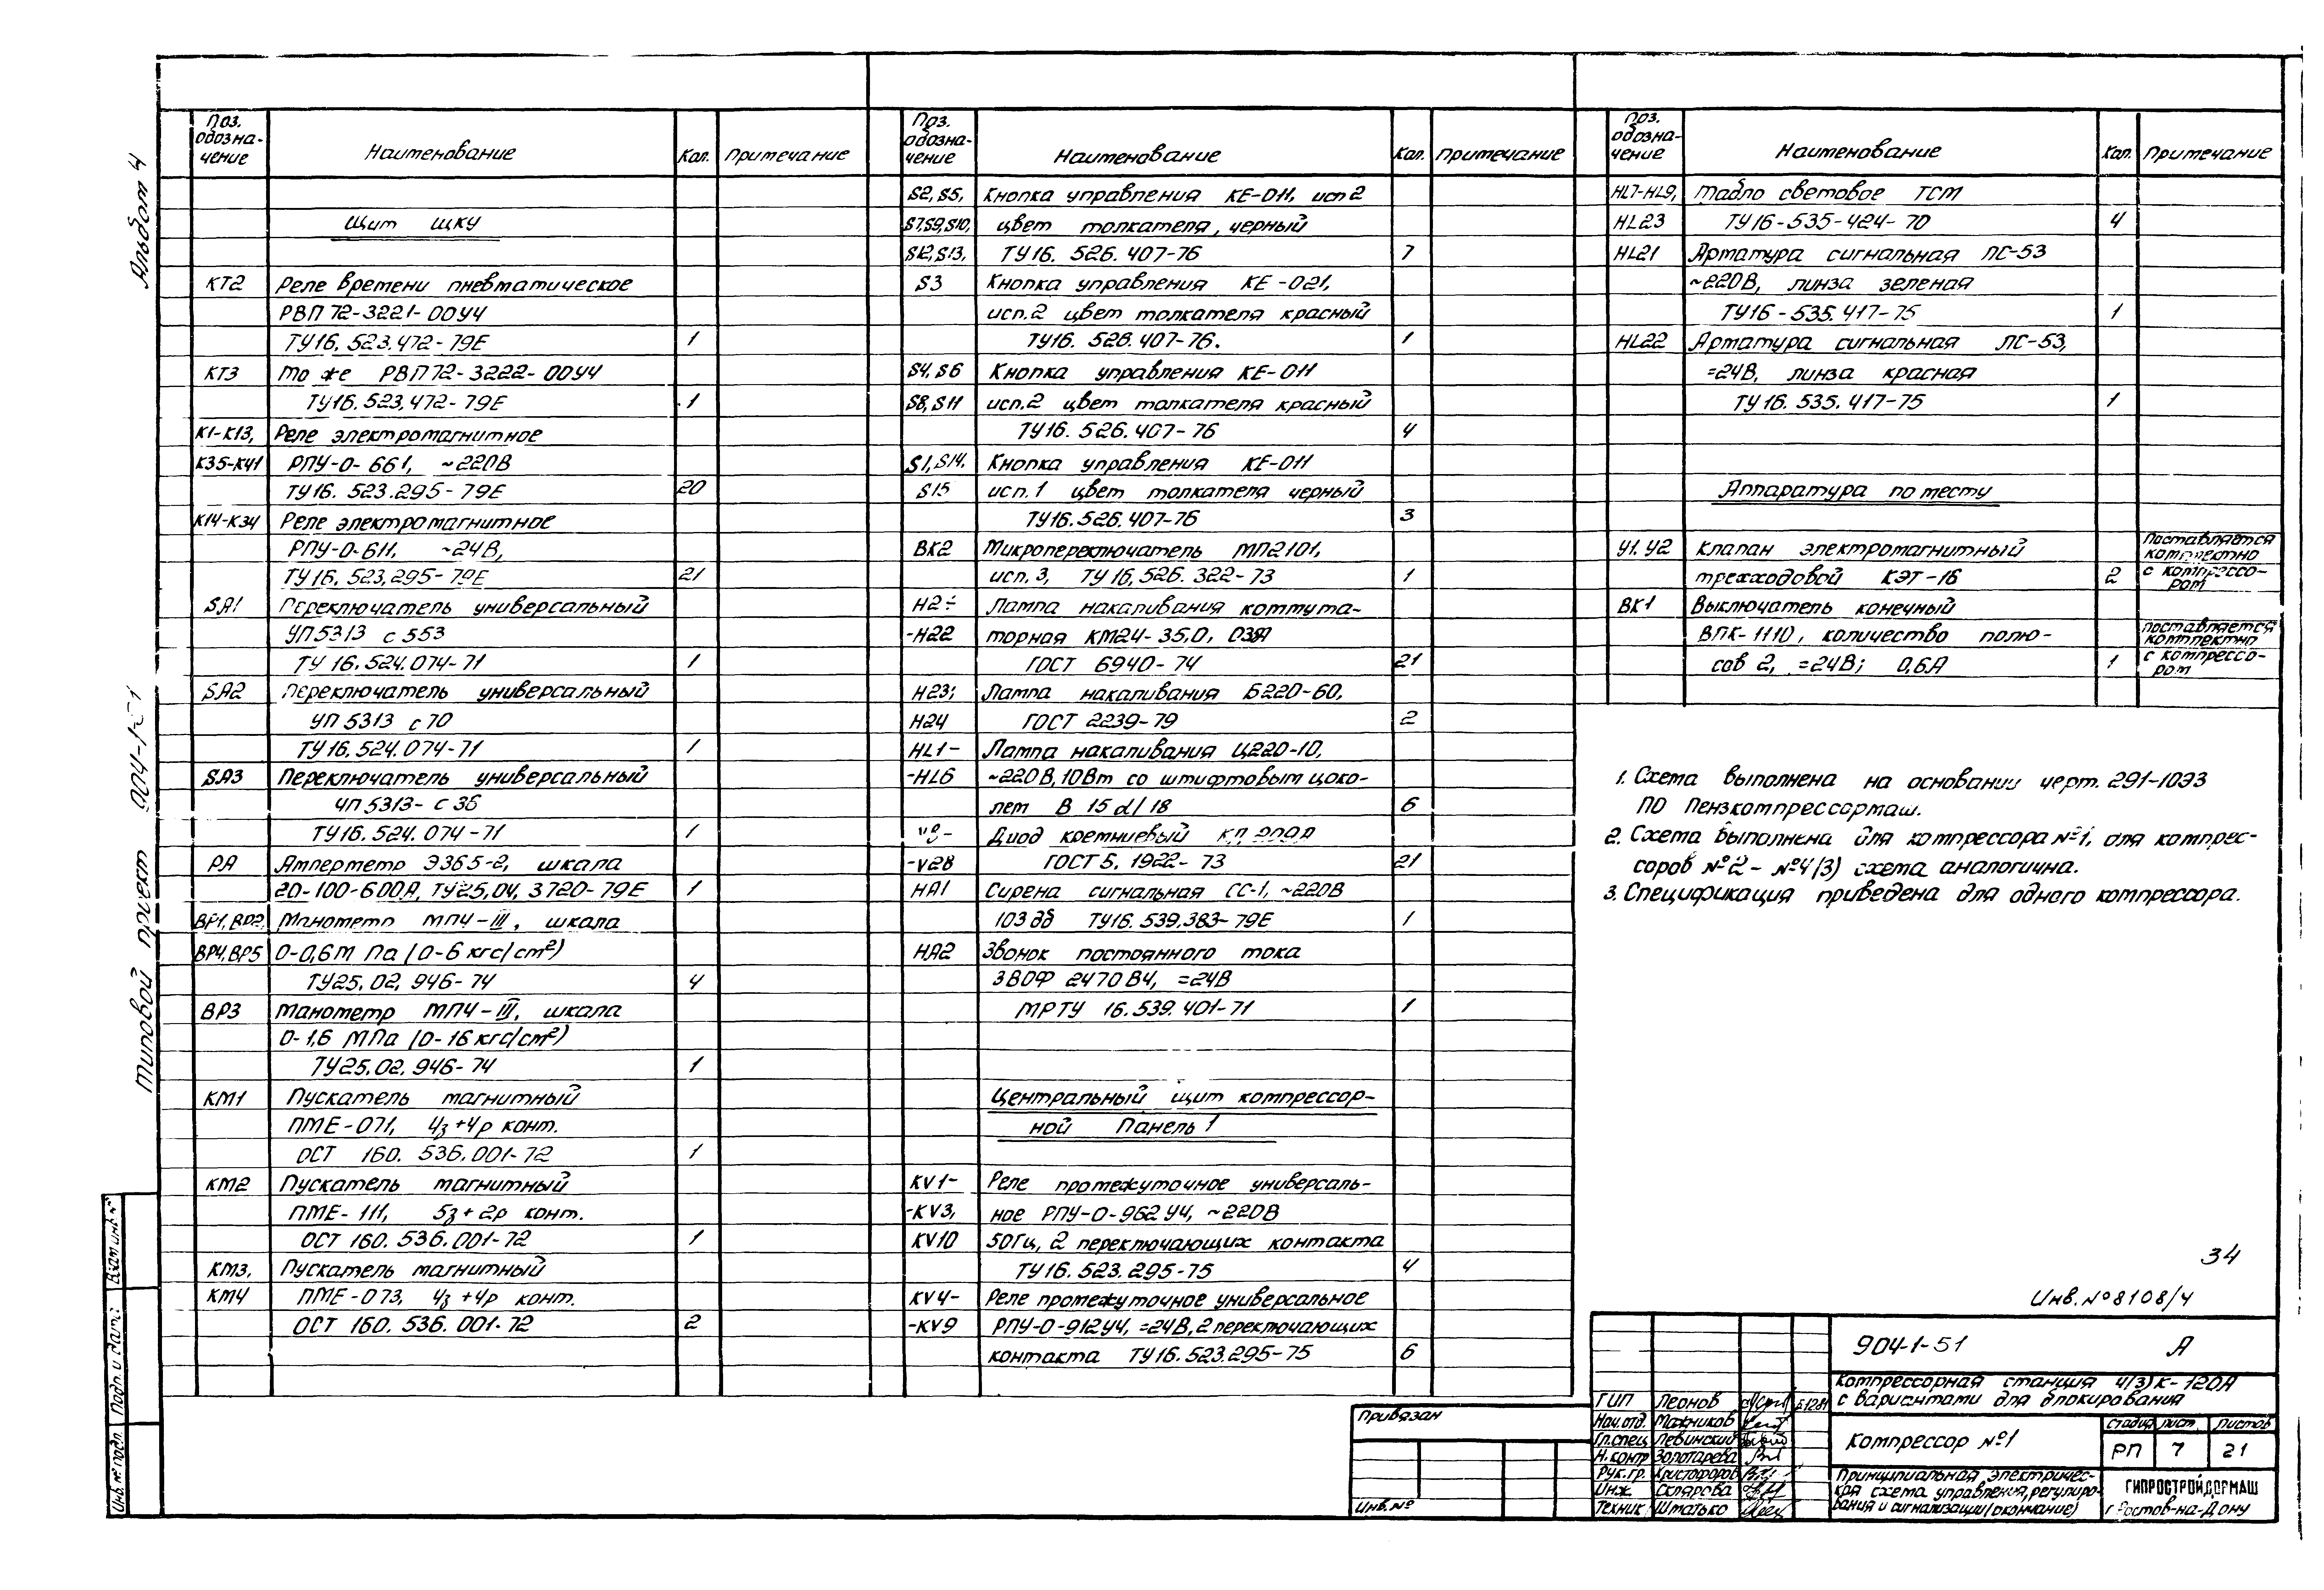 Альбом 4
Типовой проект 904-1-51
Поз. обозна- чение
Наименование
Кол.
Примечание
Щит ШКУ
КТ2 Реле времени пневматическое
РВП 72-3221-00У4
ТУ16.523.472-79Е 1
КТ3 То же РВП72-3222-00У4
ТУ16.523.472-79Е 1
К1-К13, Реле электромагнитное
К35-К41 РПУ-0-661, ~220В
ТУ16.523.295-79Е 20
К14-К34 Реле электромагнитное
РПУ-0-611, ~24В,
ТУ16.523.295-79Е 21
SA1 Переключатель универсальный
УП5313 с 553
ТУ 16.524.074-71 1
SA2 Переключатель универсальный
УП 5313 с 70
ТУ16.524.074-71 1
SA3 Переключатель универсальный
УП 5313- с 36
ТУ16.524.074-71 1
РА Амперметр Э365-2, шкала
20-100-600А, ТУ25.04.3720-79Е 1
ВР1,ВР2, Манометр МП4-III, шкала
ВР4,ВР5 0-0,6М Па (0-6 кгс/cm²)
ТУ25.02.946-74 4
ВР3 Манометр МП4-III, шкала
0-1,6 МПа (0-16 кгс/cm²)
ТУ25.02.946-74 1
КМ1 Пускатель магнитный
ПМЕ-071, 4з+4р конт.
ОСТ 160.536.001-72 1
КМ2 Пускатель магнитный
ПМЕ-111, 5з+2р конт.
ОСТ 160.536.001-72 1
КМ3, Пускатель магнитный
КМ4 ПМЕ-073, 4з+4р конт.
ОСТ 160.536.001-72 2
Поз. обозна- чение
Наименование
Кол.
Примечание
S2, S5, Кнопка управления КЕ-011, исп 2
S7,S9,S10, цвет толкателя, черный
S12,S13, ТУ16.526.407-76 7
S3 Кнопка управления КЕ-021,
исп.2 цвет толкателя красный
ТУ16.526.407-76. 1
S4, S6 Кнопка управления КЕ-011
S8, S11 исп.2 цвет толкателя красный
ТУ16.526.407-76 4
S1, S14, Кнопка управления КЕ-011
S15 исп.1 цвет толкателя черный
ТУ16.526.407-76 3
ВК2 Микропереключатель МП2101,
исп.3, ТУ 16.526.322-73 1
Н2÷ Лампа накаливания коммута-
-Н22 торная КМ24-35,0,
ГОСТ 6940-74 21
Н23; Лампа накаливания Б220-60,
Н24 ГОСТ 2239-79 2
HL1- Лампа накаливания Ц220-10,
-HL6 ~220В, 10Вт со штифтовым цоко-
лем В 15 d/18 6
Диод кремниевый
-V28 ГОСТ 5.1922-73 21
НА1 Сирена сигнальная СС-1, ~220В
103 дб ТУ16.539.383-79Е 1
НА2 Звонок постоянного тока
ЗВОФ 2470В4, =24В
МРТУ 16.539.401-71 1
Центральный щит компрессор-
ной Панель 1
KV1- Реле промежуточное универсаль-
-KV3, ное РПУ-0-962 У4, ~220В
KV10 50Гц, 2 переключающих контакта
ТУ16.523.295-75 4
KV4- Реле промежуточное универсальное
-KV9 РПУ-0-912У4, =24В, 2 переключающих
контакта ТУ16.523.295-75 6
Поз. обозна- чение
Наименование
Кол.
Примечание
HL7-HL9, Табло световое ТСМ
HL23 ТУ16-535-424-70 4
HL21 Арматура сигнальная ЛС-53
~220В, линза зеленая
ТУ16-535.417-75 1
HL22 Арматура сигнальная ЛС-53,
=24В, линза красная
ТУ16.535.417-75 1
Аппаратура по месту
У1. У2 Клапан электромагнитный
трехходовой КЭТ-16 2
Поставляется
комплектно
с компрессо-
ром
ВК1 Выключатель конечный
ВПК-1110, количество полю-
сов 2, =24В; 0,6А 1
поставляется
комплектно
с компрессо-
ром
1. Схема выполнена на основании черт. 291-10ЭЗ
ПО Пензкомпрессормаш.
2. Схема выполнена для компрессора №1, для компрес-
соров №2-№4(3) схема аналогична.
3. Спецификация приведена для одного компрессора.
34
Инв.№8108/4
Привязан
Инв.№
Взам инв №
Подп. и дата
Инв.№ подл.
ГИП Леонов
Нач.отд. Мажников
Гл.спец Левинский
Н.контр Золотарева
Рук.гр. Христофоров
Инж. Склярова
Техник Шматько
904-1-51 А
Компрессорная станция 4(3)К-120А
с вариантами для блокирования
Компрессор №1
Стадия Лист Листов
РП 7 21
Принципиальная электричес-
кая схема управления, регулиро-
вания и сигнализации (окончание)
ГИПРОСТРОЙДОРМАШ
г Ростов-на-Дону